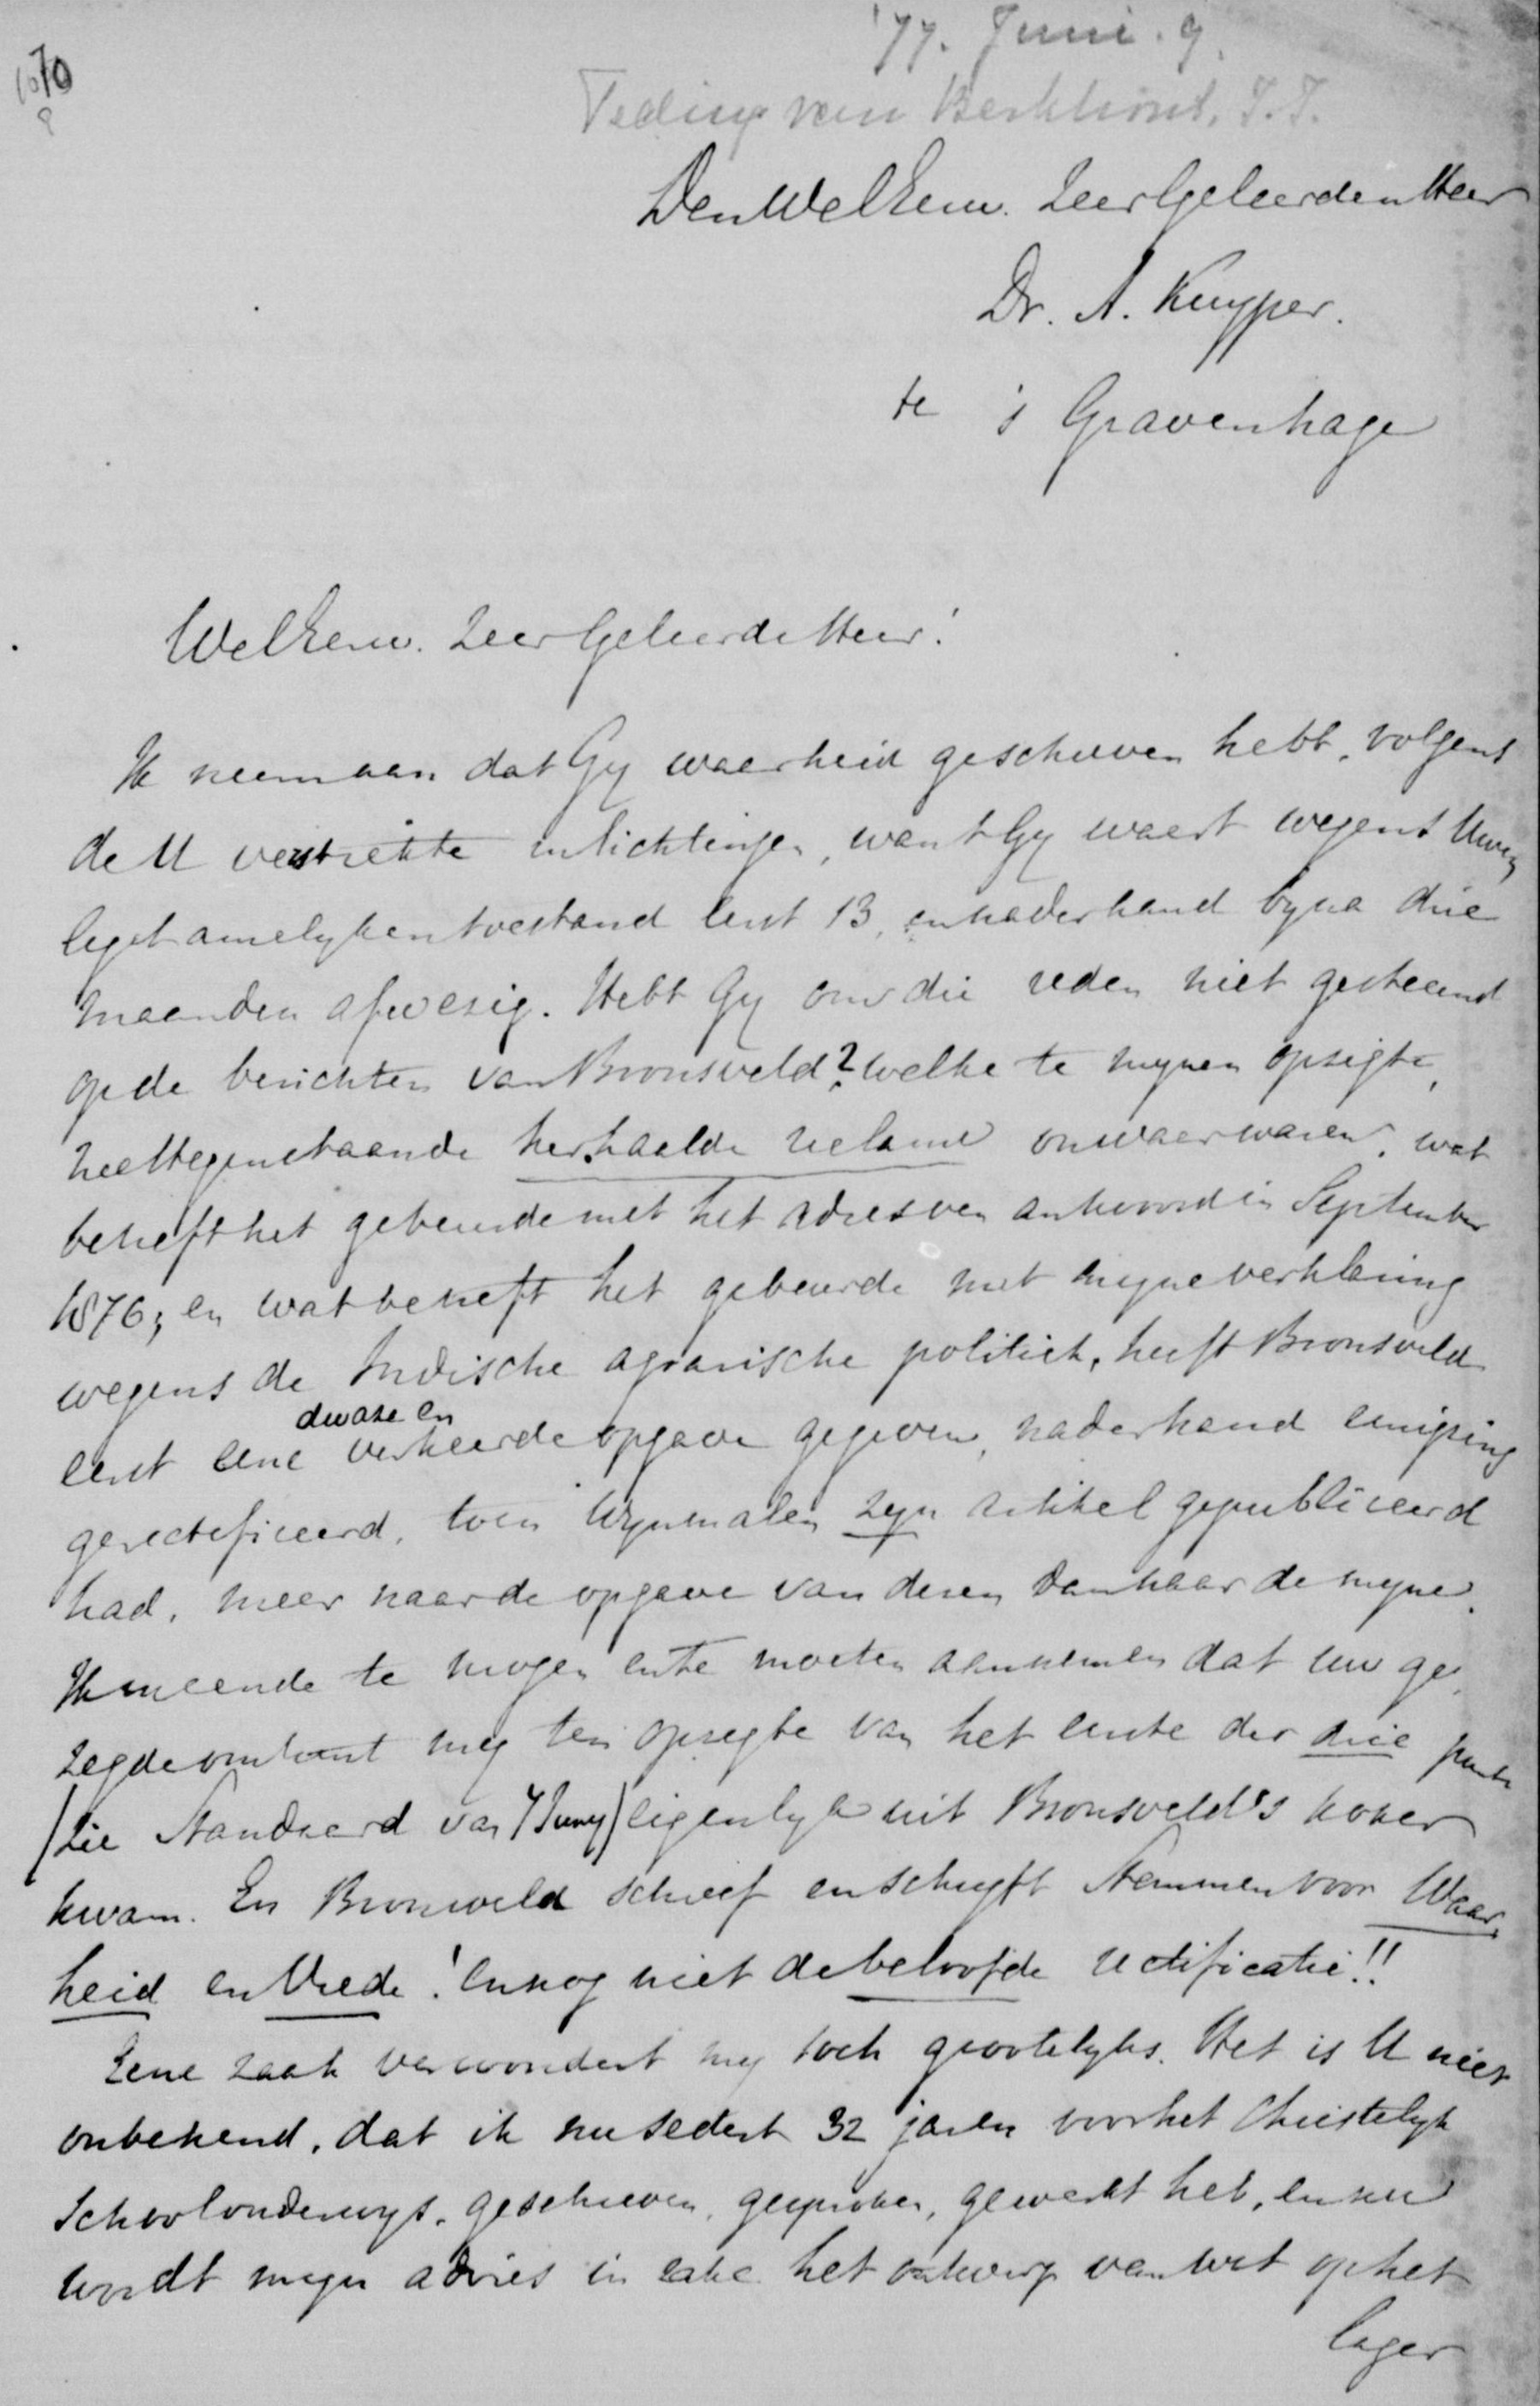 1070
'77. Juni. 9.
Teding van Berkhout, J. J.
Den WelEerw. Zeer Geleerden Heer
Dr. A. Kuyper.
te 's Gravenhage
WelEerw. Zeer Geleerde Heer!
Ik neem aan dat Gy waarheid geschreven hebt, volgens
de U verstrekte inlichtingen, want Gy waart wegens Uwen
ligchamelyken toestand eerst 13, en naderhand byna drie
maanden afwezig. Hebt Gy om die reden niet gesteund
op de berichten van Bronsveld? welke te mynen opzigte,
niettegenstaande herhaalde reclame onwaar waren, wat
betreft het gebeurde met het adres van antwoord in September
1876; en wat betreft het gebeurde met myne verklaring
wegens de Indische agrarische politiek, heeft Bronsveld
eerst eene dwaze en verkeerde opgave gegeven, naderhand eenigzins
gerectificeerd, toen Wynmalen zyn artikel gepubliceerd
had, meer naar de opgave van dezen dan naar de myne.
Ik meende te mogen en te moeten aannemen dat uw ge-
zegde omtrent my ten opzigte van het eerste der drie punten
(Zie Standaard van 7 Juny) eigenlyk uit Bronsveld's koker
kwam. En Bronsveld schreef en schryft Stemmen voor Waar-
heid en Vrede! en nog niet de beloofde rectificatie!!
Eene zaak verwondert my toch grootelyks. Het is U niet
onbekend, dat ik nu sedert 32 jaren voor het Christelyk
Schoolonderwys, geschreven, gesproken, gewerkt heb, en nu
wordt myn advies in zake het ontwerp van wet op het
lager